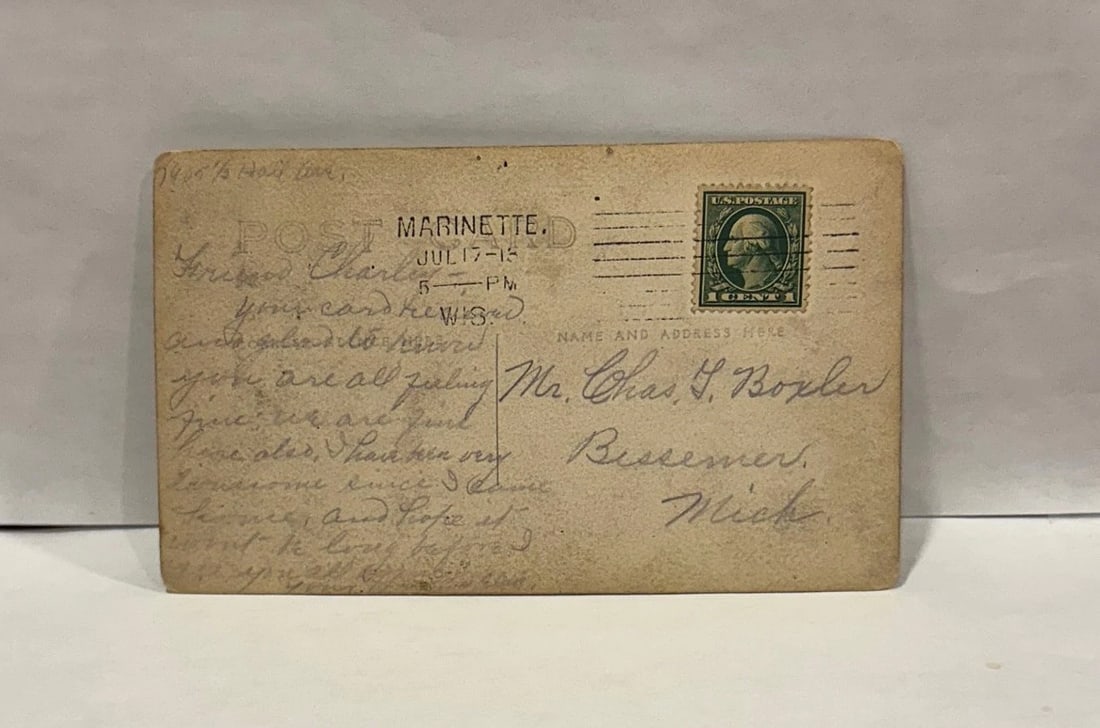 Hall Ave.
POST CARD
MARINETTE.
JUL 17-1
5 — PM
WIS.
U.S. POSTAGE
1 CENT 1
Friend Charley—
your card received
and glad to know
you are all feeling
fine. we are fine
here also. I have been very
lonesome since I came
home, and hope it
wont be long before I
you all
NAME AND ADDRESS HERE
Mr. Chas. T. Boxler
Bessemer.
Mich.